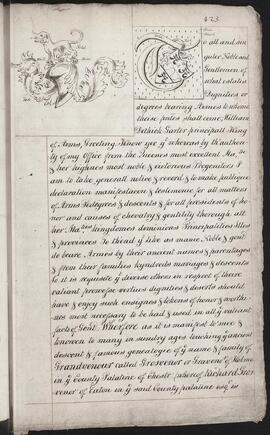 423
To all and sin
guler Noble and
Gentlemen of
what estates
Dignities or
degrees bearing Armes to whome
these shall come, William
Dethick Garter principall King
of Armes, Greeting. Know yee yt whereas by ye authori
ty of my Office from the Queenes most excellent Matie
& her highnes most noble & victorious Progenitors I
am to take generall notice & record & to make publique
declaration & testimonie for all matters
of Armes Pedegrees & descents & for all presidents of ho
nor and causes of chevalry & gentility through all
her Maties kingdomes dominions Principalities Iles
& provinces To thend yt like as some Noble & gent
do beare Armes by their ancient names & parentages
& from their families kyndreds mariages & descents
So it is requisite yt diverse others in respect of there
valiant prowesse vertues dignities & deserts should
have & enjoy such ensignes & tokens of honor & worthi
nes most necessary to be had & used in all ye valiant
facts of Gent. Wherfore as it is manifest to mee &
knowen to many in sundry ages touching ye ancient
descent & famous genealogie of ye name & family of
Grandvenour called Grosvenor or Gravenor of Holme
in ye County Palatine of Chester whereof Richard Gros
venor of Eaton in ye said County palatine esqr is